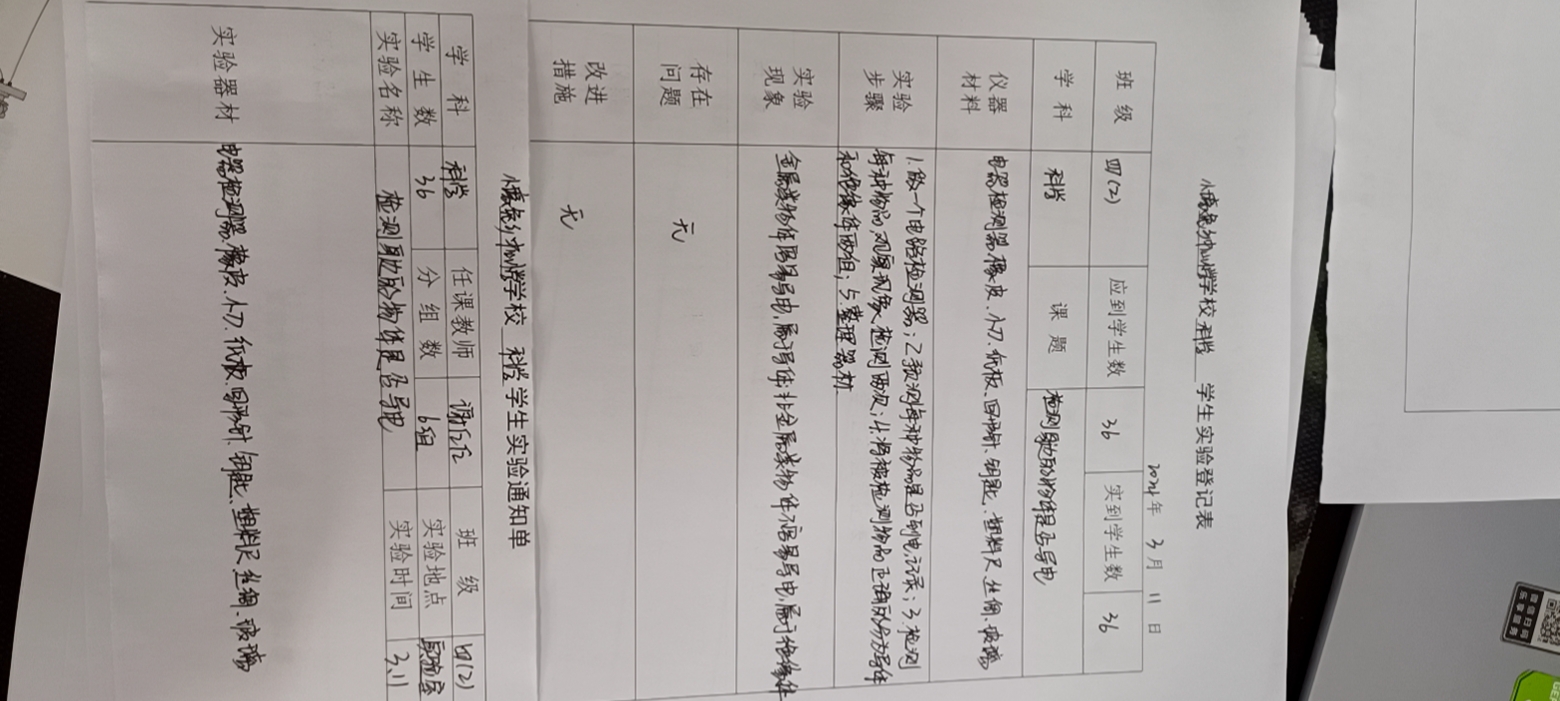 学校 科学 学生实验登记表
2024年 3月 11日
班级 四(2) 应到学生数 36 实到学生数 36
学科 科学 课题 检测身边的物体是否导电
仪器材料 电器检测器、橡皮、小刀、纸板、回形针、钥匙、塑料尺、丝绸、玻璃
实验步骤 1.做一个电路检测器；2.预测每种物品是否到电，记录；3.检测
每种物品，观察现象，检测两次；4.将被检测物品正确的分为导体
和绝缘体两组；5.整理器材
实验现象 金属类物体容易导电，属于导体；非金属类物体不容易导电，属于绝缘体
存在问题 无
改进措施 无
学校 科学 学生实验通知单
学科 科学 任课教师 班级 四(2)
学生数 36 分组数 6组 实验地点 实验室
实验名称 检测身边的物体是否导电 实验时间 3、11
实验器材 电器检测器、橡皮、小刀、纸板、回形针、钥匙、塑料尺、丝绸、玻璃